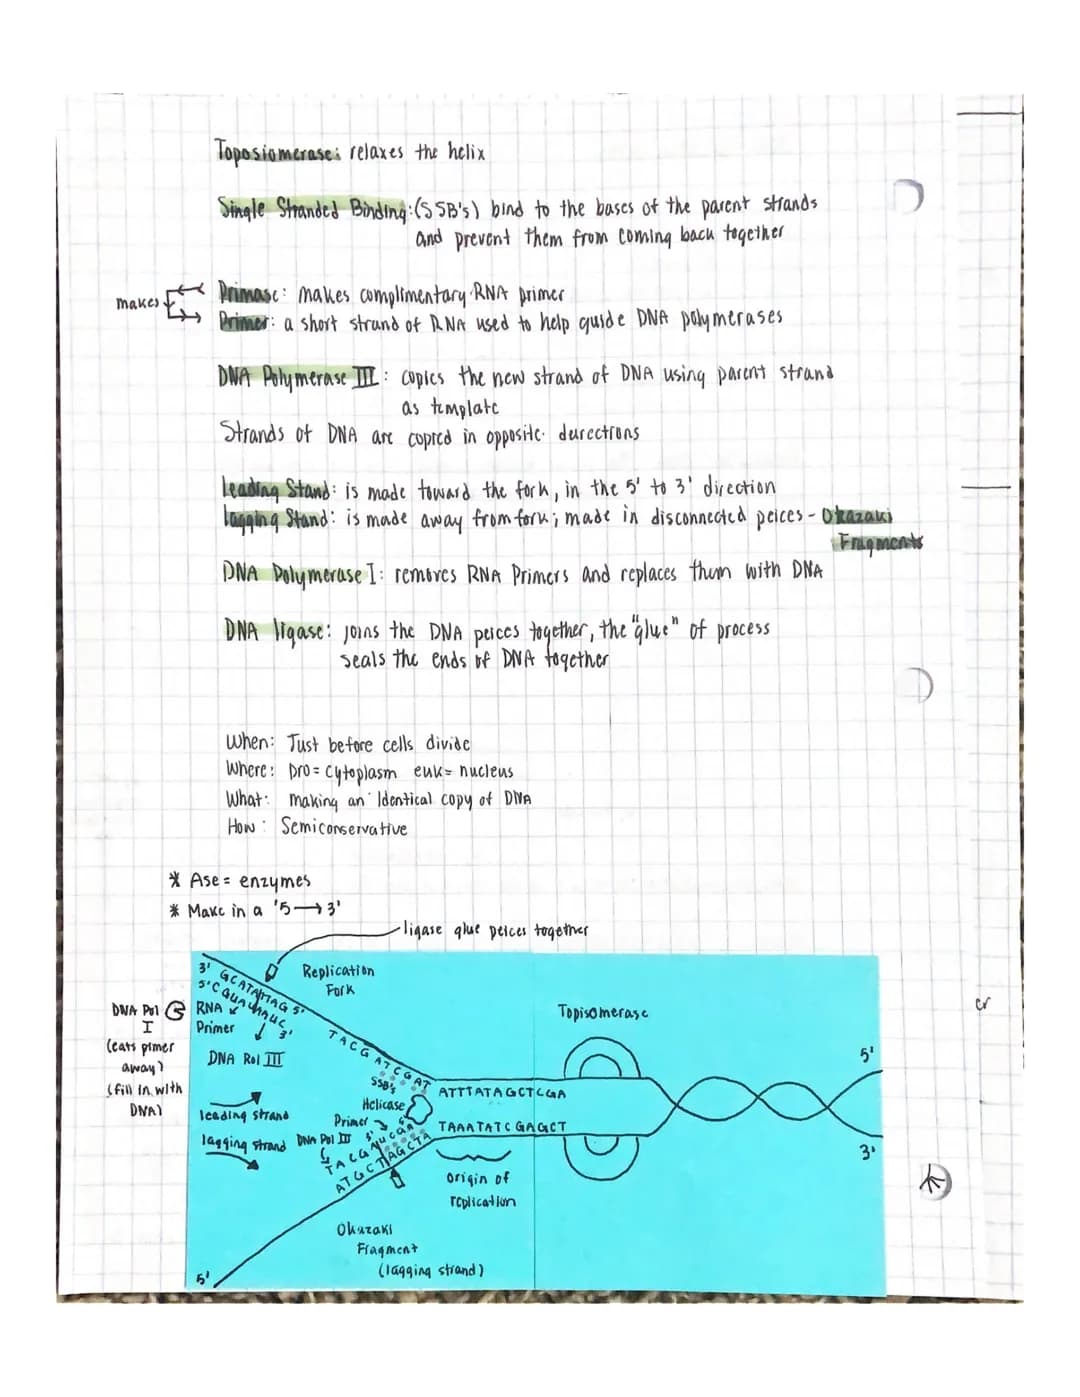 Toposiomerase: relaxes the helix
Single Stranded Binding: (SSB's) bind to the bases of the parent strands
and prevent them from coming back together
makes
Primase: makes complimentary RNA primer
Primer: a short strand of RNA used to help guide DNA polymerases
DNA Polymerase III: copies the new strand of DNA using parent strand
as template
Strands of DNA are copied in opposite durections
Leading Stand: is made toward the fork, in the 5' to 3' direction
lagging Stand: is made away from fork; made in disconnected peices - Okazaki
Fragments
DNA Polymerase I: removes RNA Primers and replaces them with DNA
DNA ligase: joins the DNA peices together, the "glue" of process
seals the ends of DNA together
When: Just before cells divide
Where: pro = cytoplasm euk = nucleus
What: making an identical copy of DNA
How: Semiconservative
* Ase = enzymes
* Make in a '5 → 3'
ligase glue peices together
Replication
Fork
3' GCATATTAG 5'
RNA
Primer
3'
DNA Pol
I
(eats pimer
away)
(fill in with
DNA)
DNA Pol III
TACGATCGAT
SSB's
Helicase
Primer
leading strand
lagging strand
DNA Pol III
ATGCTAGCTA
Topisomerase
ATTTATAGCTCGA
TAAATATCGAGCT
5'
3'
origin of
replication
Okazaki
Fragment
(lagging strand)
5'
er